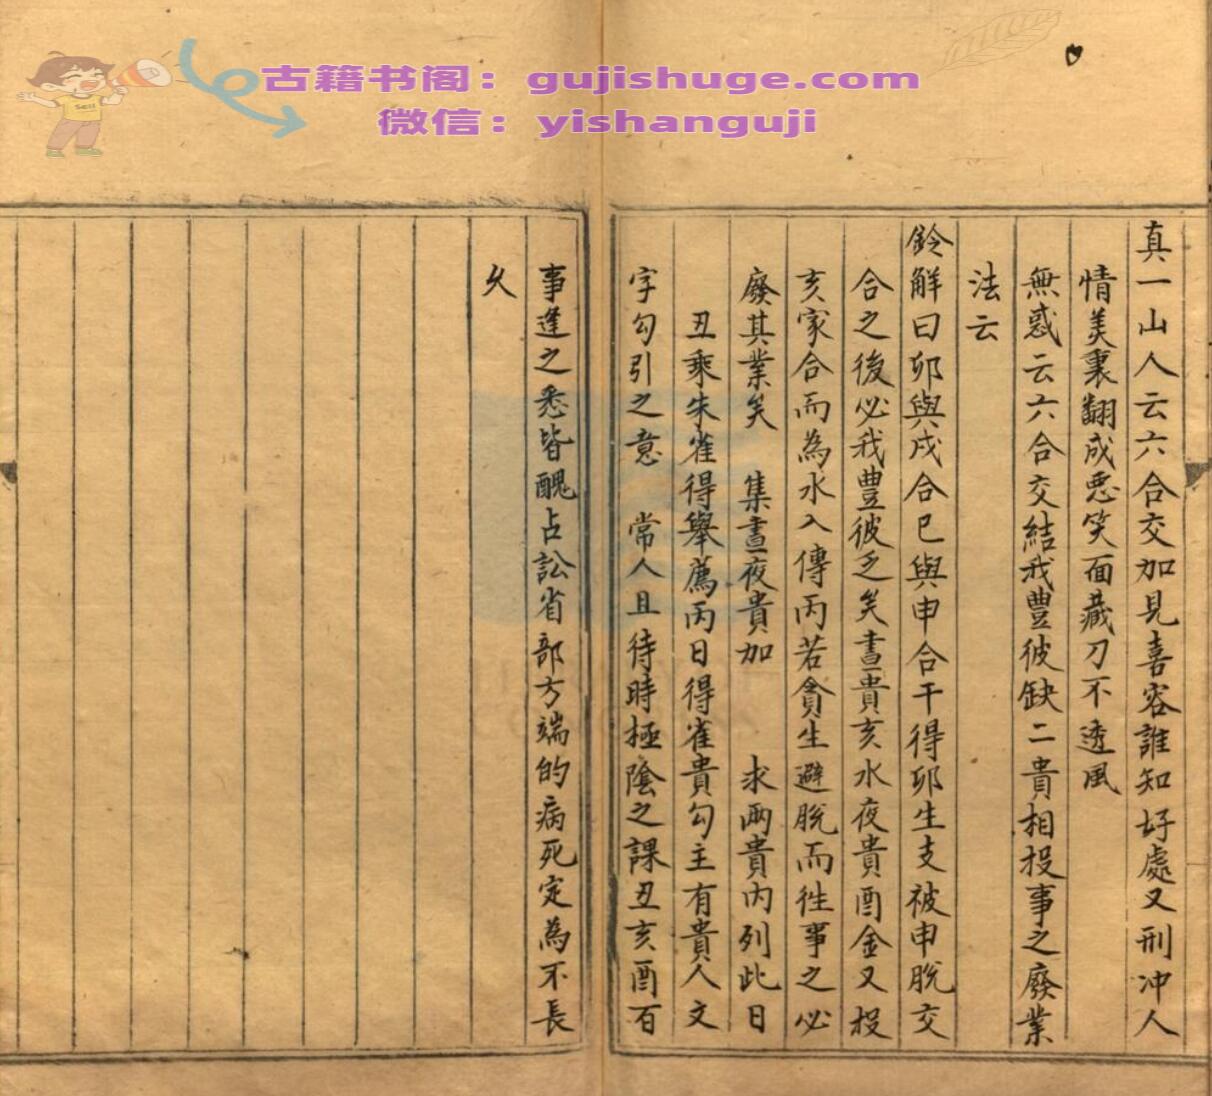 古籍书阁：gujishuge.com
微信：yishanguji
真一山人云六合交加見喜容誰知好處又刑冲人
情美裏翻成惡笑面藏刀不透風
無惑云六合交結我豐彼缺二貴相投事之廢業
法云
鈴解曰卯與戌合巳與申合干得卯生支被申脫交
合之後必我豊彼乏矣晝貴亥水夜貴酉金又投
亥家合而為水入傳丙若貪生避脫而徃事之必
廢其業矣　集晝夜貴加　求兩貴内列此日
丑乘朱雀得舉薦丙日得雀貴勾主有貴人文
字勾引之意　常人且待時極陰之課丑亥酉百
事逢之悉皆醜占訟省部方端的病死定為不長
久